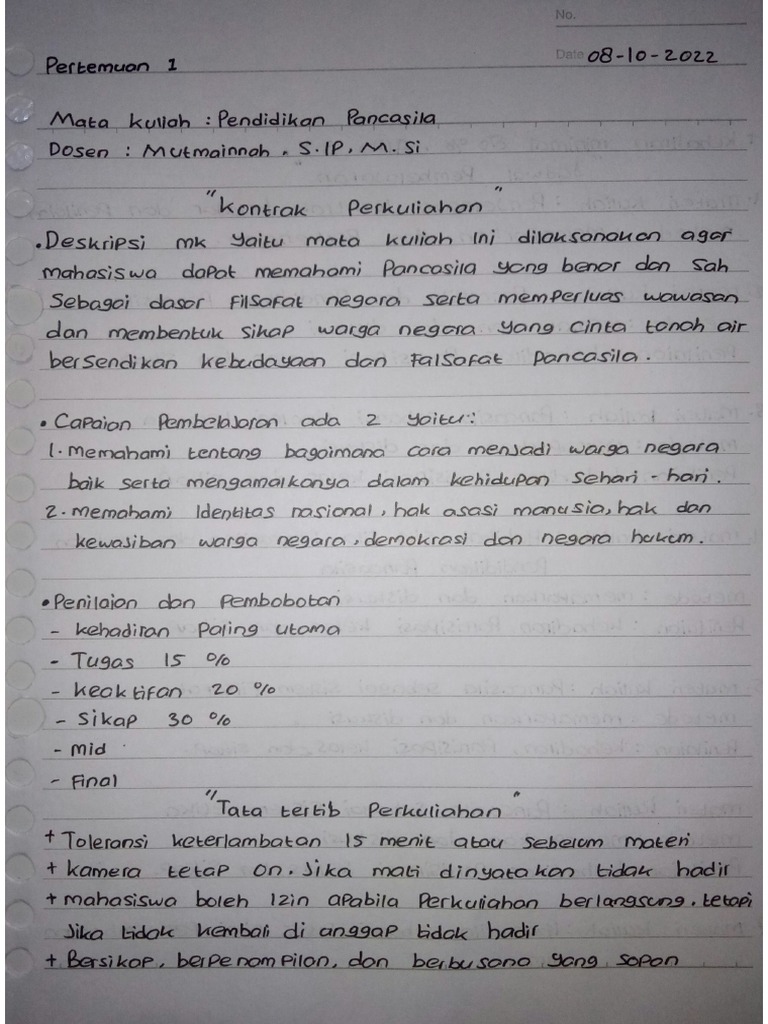 No.
Date 08-10-2022
Pertemuan 1
Mata kuliah : Pendidikan Pancasila
Dosen : Mutmainnah. S.IP, M.Si
"Kontrak Perkuliahan"
• Deskripsi mk yaitu mata kuliah ini dilaksanakan agar
mahasiswa dapat memahami Pancasila yang benar dan sah
sebagai dasar filsafat negara serta memperluas wawasan
dan membentuk sikap warga negara yang cinta tanah air
bersendikan kebudayaan dan falsafat pancasila.
• Capaian Pembelajaran ada 2 yaitu :
1. Memahami tentang bagaimana cara menjadi warga negara
baik serta mengamalkanya dalam kehidupan sehari - hari.
2. Memahami Identitas nasional, hak asasi manusia, hak dan
kewajiban warga negara, demokrasi dan negara hukum.
• Penilaian dan pembobotan
- kehadiran Paling utama
- Tugas 15 %
- keaktifan 20 %
- Sikap 30 %
- mid
- Final
"Tata tertib Perkuliahan"
+ Toleransi keterlambatan 15 menit atau sebelum materi
+ kamera tetap on. Jika mati dinyatakan tidak hadir
+ mahasiswa boleh Izin apabila Perkuliahan berlangsung. tetapi
Jika tidak kembali di anggap tidak hadir
+ Bersikap, berpenampilan, dan berbusana yang sopan